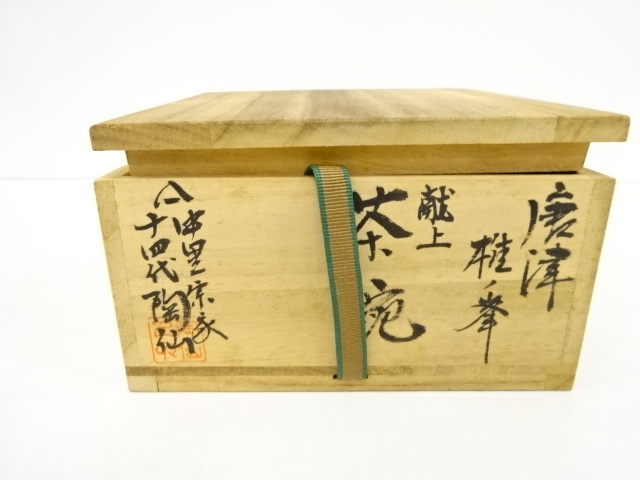 唐津
椎ノ峯
献上
茶宛
中里宗家
十四代陶仙